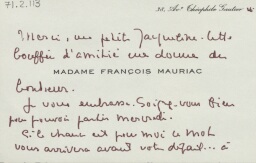 71.2.113
38, Av.ᵉ Théophile Gautier
Merci, ma petite Jacqueline. Cette
bouffée d'amitié me donne du
MADAME FRANÇOIS MAURIAC
bonheur.
Je vous embrasse. Soignez vous bien
pour pouvoir partir mercredi.
Si la chance est pour moi ce mot
vous arrivera avant votre départ... à